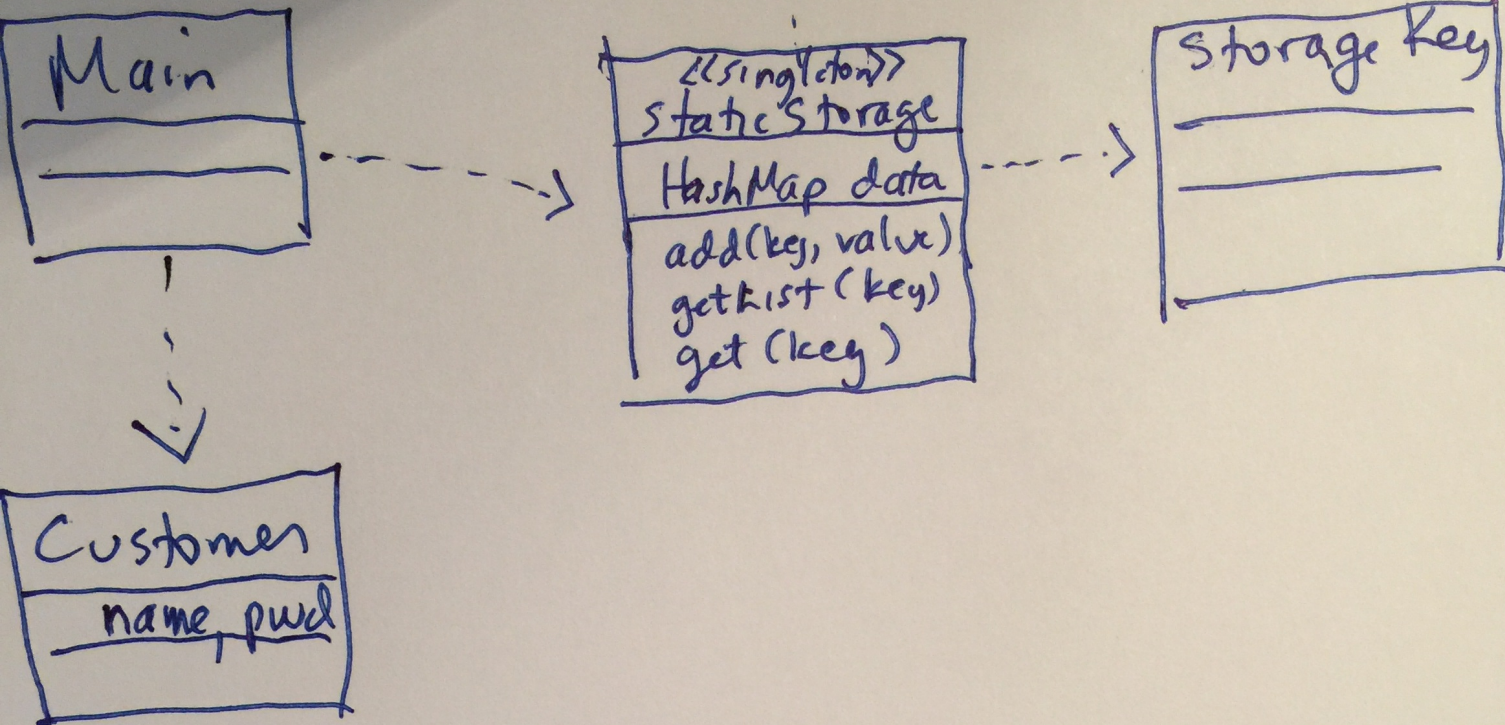 Main
<<singleton>>
static Storage
HashMap data
add(key, value)
getList(key)
get(key)
Storage Key
Customer
name, pwd